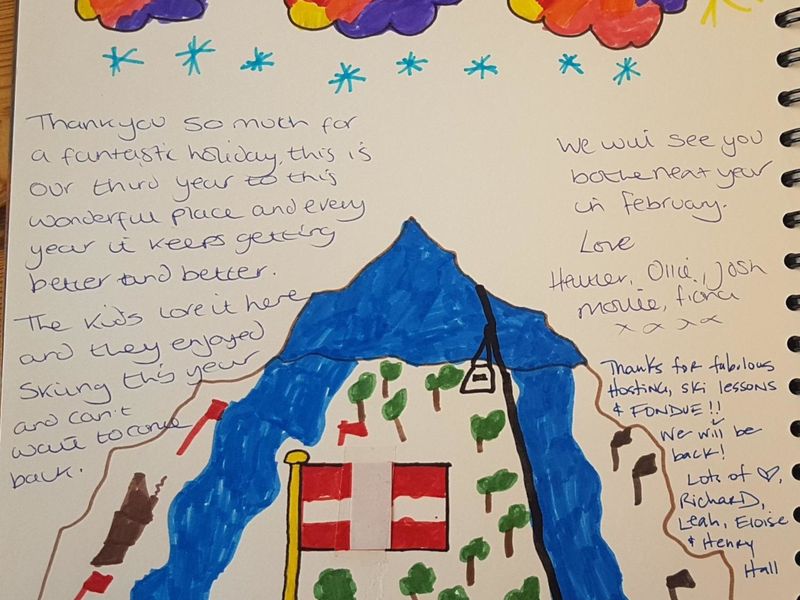 Thankyou so much for
a fantastic holiday, this is
our third year to this
wonderful place and every
year it keeps getting
better and better.
The kids love it here
and they enjoyed
Skiing this year
and can't
wait to come
back.
We will see you
next year
in february.
Love
Ollie, Josh
Mollie, fiona
x x x x
Thanks for fabulous
Hosting, ski lessons
& FONDUE!!
We will be
back!
Lots of ♡,
RicharD,
Leah, Eloise
& Henry
Hall